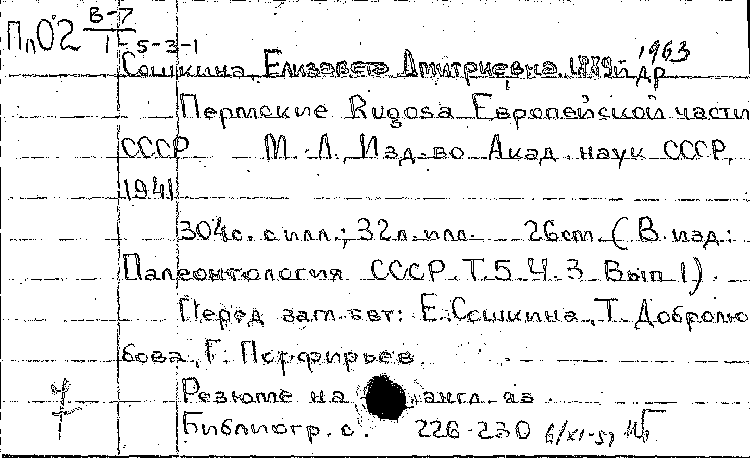 ПлО2 В-7
1-5-3-1
1963
Сошкина, Елизавета Дмитриевна и др
Пермские Rugosa Европейской части
СССР М.-Л., Изд-во Акад. наук СССР,
1941
304с. с илл.; 32л. илл. 26см. (В изд:
Палеонтология СССР. Т.5. Ч.3. Вып 1).
Перед загл. авт: Е. Сошкина, Т. Добролю
бова, Г. Порфирьев.
Резюме на англ. яз.
Библиогр. с. 226-230